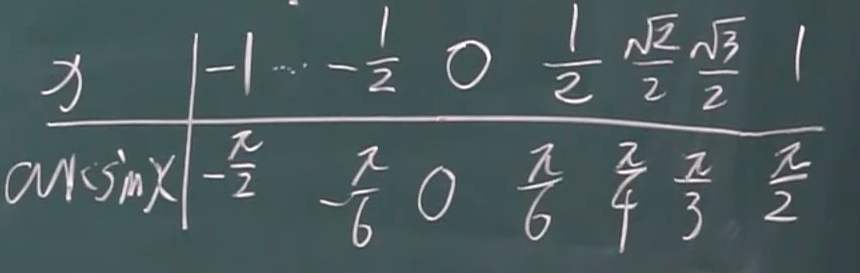 x -1 ... -1/2 0 1/2 √2/2 √3/2 1
arcsinx -π/2 -π/6 0 π/6 π/4 π/3 π/2